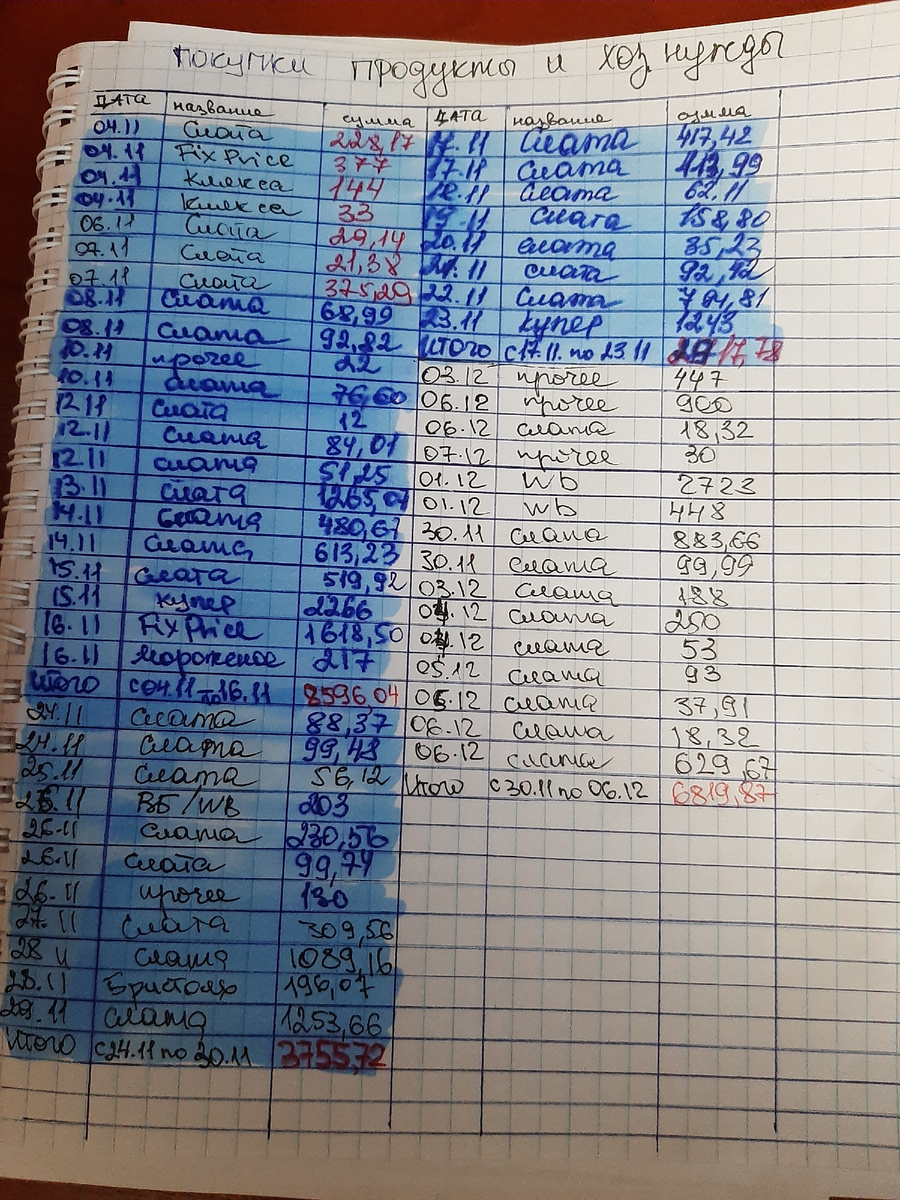 покупки продукты и хоз. нужды
дата название сумма
04.11 Слата 228,17
04.11 Fix Price 377
04.11 Клякса 144
04.11 Клякса 33
06.11 Слата 29,14
07.11 Слата 21,38
07.11 Слата 375,29
08.11 Слата 68,99
08.11 Слата 92,82
10.11 прочее 22
10.11 Слата 76,60
12.11 Слата 12
12.11 Слата 84,01
12.11 Слата 51,25
13.11 Слата 1265,07
14.11 Слата 480,67
14.11 Слата 613,23
15.11 Слата 519,92
15.11 купер 2266
16.11 Fix Price 1618,50
16.11 Мороженое 217
Итого с 04.11 по 16.11 8596,04
24.11 Слата 88,37
24.11 Слата 99,48
25.11 Слата 56,12
25.11 ВБ/WB 203
26.11 Слата 230,56
26.11 Слата 99,74
26.11 прочее 130
27.11 Слата 309,56
28.11 Слата 1089,16
28.11 Бристоль 196,07
29.11 Слата 1253,66
Итого с 24.11 по 30.11 3755,72
дата название сумма
17.11 Слата 417,42
17.11 Слата 113,99
18.11 Слата 62,11
19.11 Слата 158,80
20.11 Слата 35,23
21.11 Слата 92,12
22.11 Слата 791,81
23.11 купер 1243
Итого с 17.11. по 23.11 2917,78
03.12 прочее 447
06.12 прочее 900
06.12 слата 18,32
07.12 прочее 30
01.12 Wb 2723
01.12 Wb 448
30.11 слата 883,66
30.11 слата 99,99
03.12 Слата 188
04.12 Слата 250
04.12 слата 53
05.12 Слата 93
05.12 слата 37,91
06.12 слата 18,32
06.12 слата 629,67
Итого с 30.11 по 06.12 6819,87